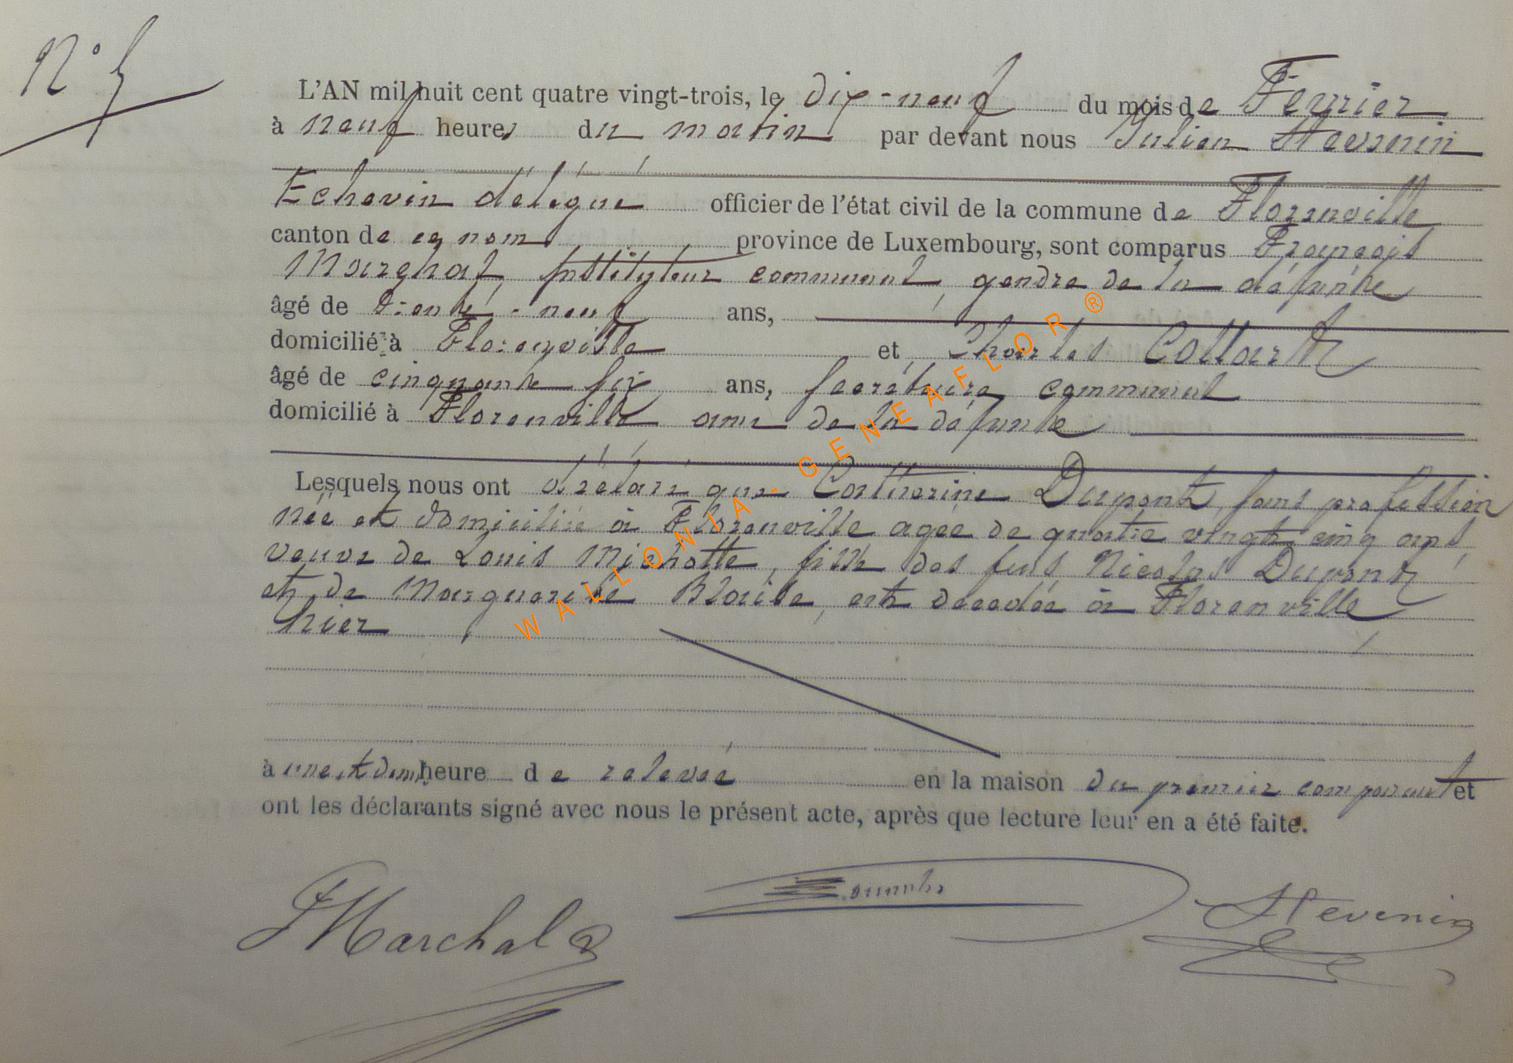 N° 5
L'AN mil huit cent quatre vingt-trois, le dix-neuf du mois de Fevrier
à neuf heures du matin par devant nous Julien Stevenin
Echevin délégué officier de l'état civil de la commune de Florenville
canton de ce nom province de Luxembourg, sont comparus François
Marchal, Instituteur communal, gendre de la défunte
âgé de trente-neuf ans,
domicilié à Florenville et Charles Collart
âgé de cinquante six ans, secrétaire communal
domicilié à Florenville ami de la défunte
Lesquels nous ont déclaré que Catherine Dupont, sans profession
née et domiciliée à Florenville agée de quatre vingt cinq ans
veuve de Louis Michotte, fille des feus Nicolas Dupont
et de Marguerite Blaise, est decedée à Florenville
hier
à une et demi heure de relevée en la maison du premier comparant et
ont les déclarants signé avec nous le présent acte, après que lecture leur en a été faite.
FMarchal Stevenin
WALLONIA - GENEAFLOR ®